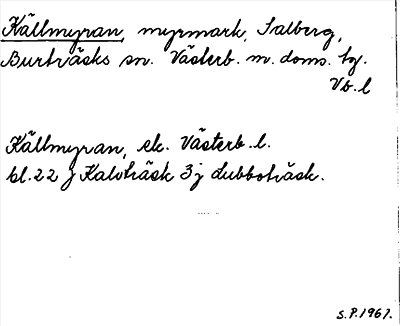 Källmyran, myrmark, Salberg,
Burträsks sn. Västerb. m. doms. hg.
Vb. l
Källmyran, ek. Västerb. l.
bl. 22 j Kalvträsk 3 j Lubboträsk.
S.P. 1961.